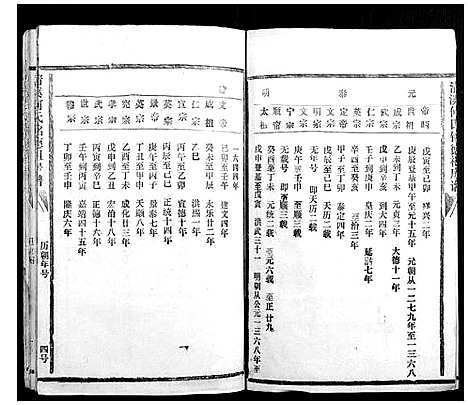 帝昺 戊寅至己巳 祥兴二年
元 世祖 庚辰登基甲午 至元十五年 元朝从一二七九年至一三六八
成宗 乙未到丁未 元贞三年 大德十一年
武宗 戊申到辛亥 到大四年
仁宗 壬子到庚申 皇庆二年 延祐七年
英宗 辛酉至癸亥 至治三年
泰定帝 甲子至丁卯 泰定四年
明宗 戊辰至己巳 天历二年
文宗 无年号 即至天历二年
宁宗 无载号 即至顺三年
顺帝 癸酉至丁未 元统二载 至元六载 至正廿九
明 太祖 戊申登基至戊寅 洪武三十一 明朝从公元一三六八年至
一六四四年
建文帝 己卯至壬午 建文四年
成祖 癸未至甲辰 永乐廿二年
仁宗 乙巳 洪熙一年
宣宗 丙午至乙卯 宣德十年
英宗 丙辰至己巳 正统十四年
景帝 庚午至丙子 景泰七年
英宗 丁丑至甲申 天顺八年
宪宗 乙酉至丁未 成化廿三年
孝宗 戊申到乙丑 宏治十八年
武宗 丙寅到辛巳 正德十六年
世宗 壬午到丙寅 嘉靖四十五年
穆宗 丁卯至壬申 隆庆六年
历朝年号
四号